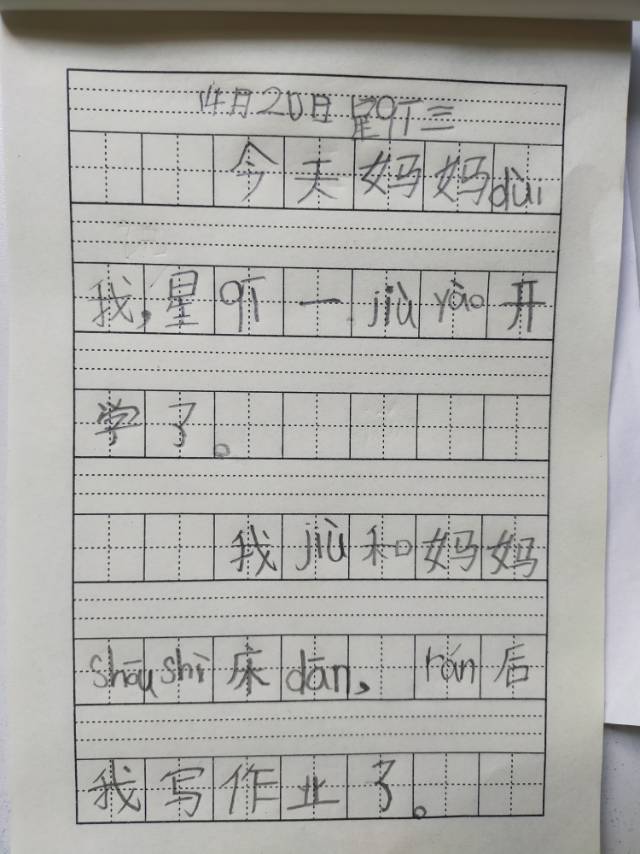 4月20日 星期三
今天妈妈duì
我,星期一jiù yào开
学了。
我jiù和妈妈
shōu shì床dān, rán后
我写作业了。